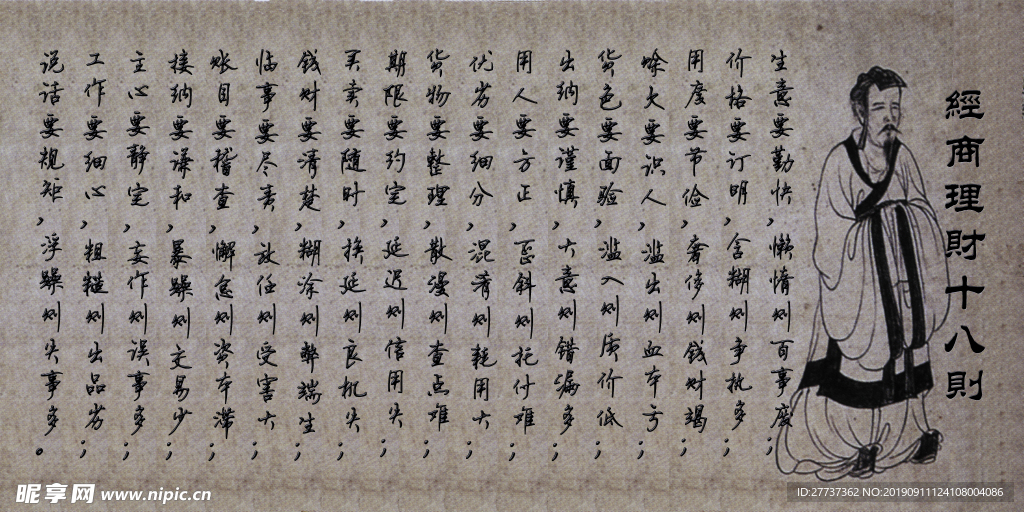 經商理財十八則
生意要勤快，懒惰则百事废；
价格要订明，含糊则争执多；
用度要节俭，奢侈则钱财竭；
赊欠要识人，滥出则血本亏；
货色要面验，滥入则质价低；
出纳要谨慎，大意则错漏多；
用人要方正，歪斜则托付难；
优劣要细分，混淆则耗用大；
货物要整理，散漫则查点难；
期限要约定，延迟则信用失；
买卖要随时，挨延则良机失；
钱财要清楚，糊涂则弊端生；
临事要尽责，放任则受害大；
账目要稽查，懈怠则资本滞；
接纳要谦和，暴躁则交易少；
主心要静定，妄作则误事多；
工作要细心，粗糙则出品劣；
说话要规矩，浮躁则失事多。
昵享网 www.nipic.cn
ID:27737362 NO:20190911124108004086